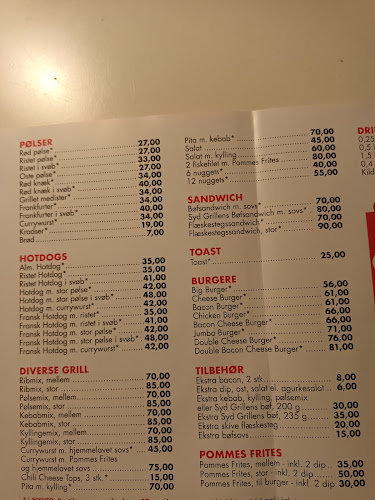 PØLSER
Rød pølse* 27,00
Ristet pølse* 27,00
Ristet i svøb* 33,00
Oste pølse* 34,00
Rød knæk* 34,00
Rød knæk i svøb* 40,00
Grillet medister* 34,00
Frankfurter* 34,00
Frankfurter i svøb* 40,00
Currywurst* 34,00
Knadser* 19,00
Brød 7,00
HOTDOGS
Alm. Hotdog* 35,00
Ristet Hotdog* 35,00
Ristet Hotdog i svøb* 41,00
Hotdog m. stor pølse* 42,00
Hotdog m. stor pølse i svøb* 48,00
Hotdog m. currywurst* 42,00
Fransk Hotdog m. ristet* 35,00
Fransk Hotdog m. ristet i svøb* 41,00
Fransk Hotdog m. stor pølse* 42,00
Fransk Hotdog m. stor pølse i svøb* 48,00
Fransk Hotdog m. currywurst* 42,00
DIVERSE GRILL
Ribmix, mellem 70,00
Ribmix, stor 85,00
Pølsemix, mellem 70,00
Pølsemix, stor 85,00
Kebabmix, mellem 70,00
Kebabmix, stor 85,00
Kyllingemix, mellem 70,00
Kyllingemix, stor 85,00
Currywurst m. hjemmelavet sovs* 45,00
Currywurst m. Pommes Frites
og hjemmelavet sovs 75,00
Chili Cheese Tops, 3 stk.* 15,00
Pita m. kylling* 70,00
Pita m. kebab* 70,00
Salat 45,00
Salat m. kylling 60,00
2 fiskefilet m. Pommes Frites 80,00
6 nuggets* 40,00
12 nuggets* 55,00
SANDWICH
Bøfsandwich m. sovs* 70,00
Syd Grillens Bøfsandwich m. sovs* 80,00
Flæskestegssandwich* 70,00
Flæskestegssandwich, stor* 90,00
TOAST
Toast* 25,00
BURGERE
Big Burger* 56,00
Cheese Burger* 61,00
Bacon Burger* 61,00
Chicken Burger* 66,00
Bacon Cheese Burger* 66,00
Jumbo Burger* 71,00
Double Cheese Burger* 76,00
Double Bacon Cheese Burger* 81,00
TILBEHØR
Ekstra bacon, 2 stk. 8,00
Ekstra dip, ost, salat el. agurkesalat 6,00
Ekstra kebab, kylling, pølsemix
eller Syd Grillen bøf, 200 g 30,00
Ekstra Syd Grillens bøf, 235 g 35,00
Ekstra skive flæskesteg 20,00
Ekstra bøfsovs 15,00
POMMES FRITES
Pommes Frites, mellem - inkl. 2 dip 35,00
Pommes Frites, stor - inkl. 2 dip 50,00
Pommes Frites, til burger - inkl. 2 dip 30,00
DRI
0,25
0,5
1,5
0,4
Kild